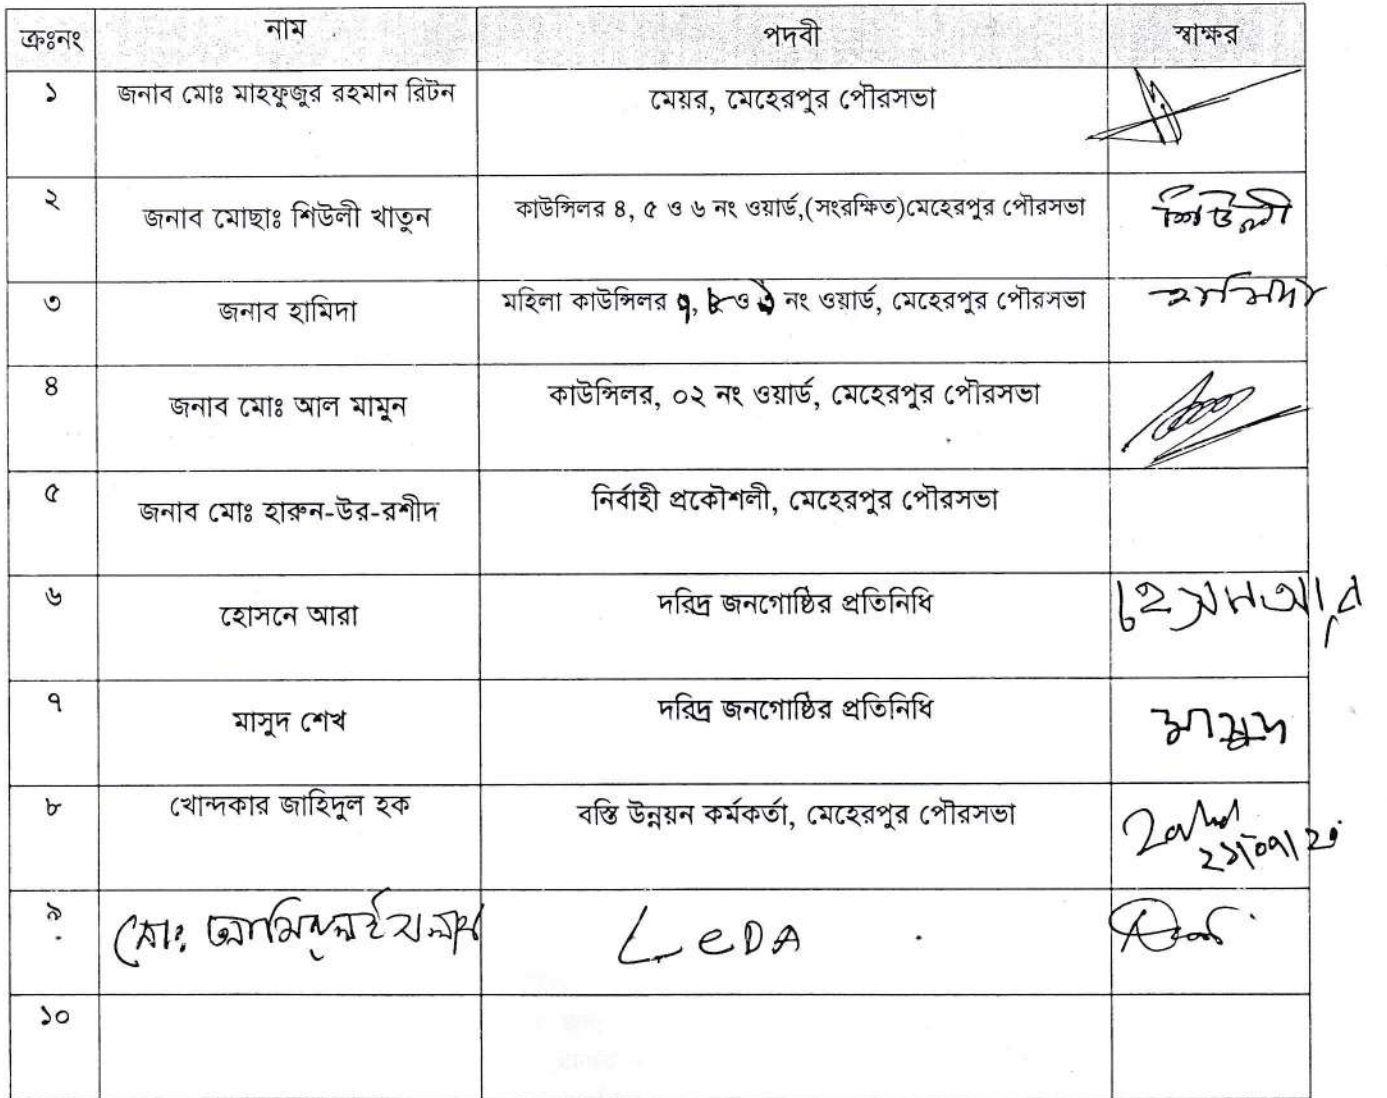 ক্রঃনং নাম পদবী স্বাক্ষর
১ জনাব মোঃ মাহফুজুর রহমান রিটন মেয়র, মেহেরপুর পৌরসভা
২ জনাব মোছাঃ শিউলী খাতুন কাউন্সিলর ৪, ৫ ও ৬ নং ওয়ার্ড,(সংরক্ষিত)মেহেরপুর পৌরসভা শিউলী
৩ জনাব হামিদা মহিলা কাউন্সিলর ৭, ৮ ও ৯ নং ওয়ার্ড, মেহেরপুর পৌরসভা হামিদা
৪ জনাব মোঃ আল মামুন কাউন্সিলর, ০২ নং ওয়ার্ড, মেহেরপুর পৌরসভা
৫ জনাব মোঃ হারুন-উর-রশীদ নির্বাহী প্রকৌশলী, মেহেরপুর পৌরসভা
৬ হোসনে আরা দরিদ্র জনগোষ্ঠির প্রতিনিধি হোসনে আরা
৭ মাসুদ শেখ দরিদ্র জনগোষ্ঠির প্রতিনিধি মাসুদ
৮ খোন্দকার জাহিদুল হক বস্তি উন্নয়ন কর্মকর্তা, মেহেরপুর পৌরসভা
৯ মোঃ আমিনুল ইসলাম LeDA
১০